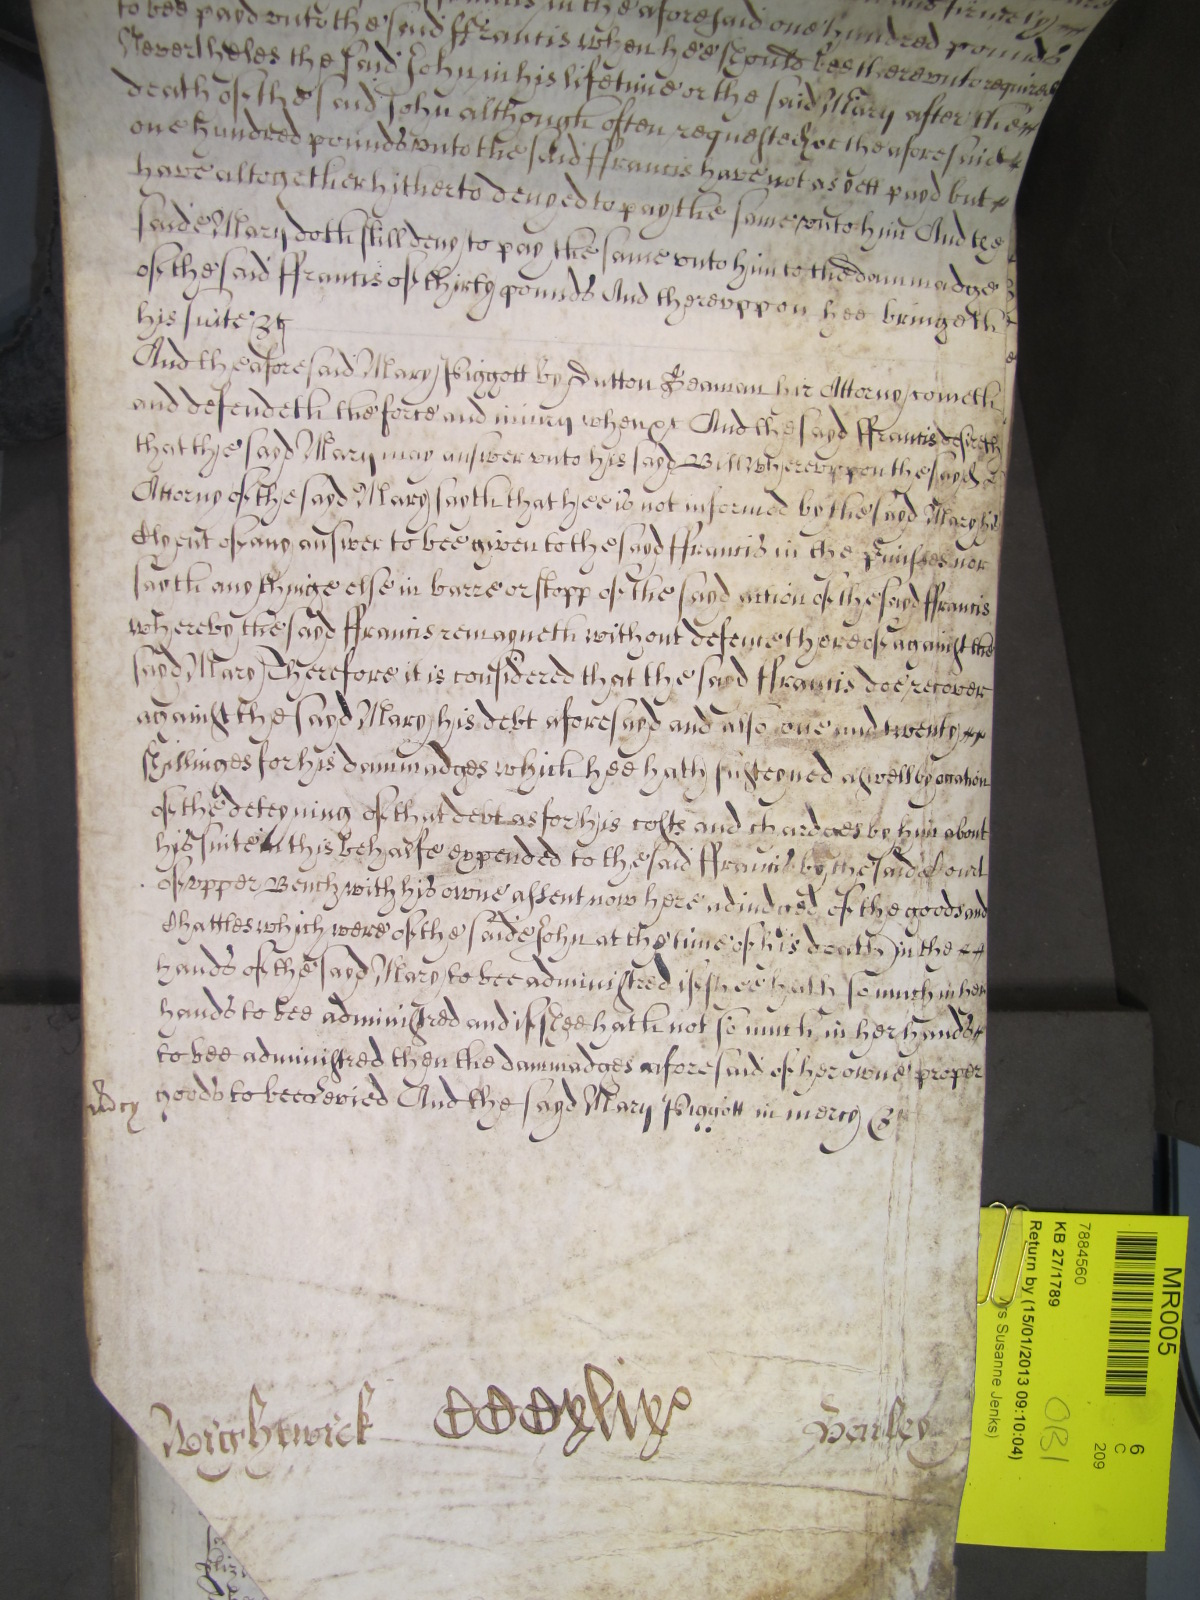 to bee payd unto the said ffrancis when hee should bee thereunto required
Neverthelves the said John in his lifetime or the said Mary after the
death of the said John although often requested &c the aforesaid
one hundred pounds unto the said ffrancis have not as yett payd but
have altogether hitherto denyed to pay the same unto him And the
saide Mary doth still deny to pay the same unto him to the dammadge
of the said ffrancis of thirty pounds And thereuppon hee bringeth
his suite &c
And the aforesaid Mary Piggott by Dutton Seaman hir Attorny cometh
and defendeth the force and iniury when &c And the sayd ffrancis desireth
that the sayd Mary may answer unto his sayd Bill whereuppon the sayd
Attorny of the sayd Mary sayth that hee is not informed by the sayd Mary his
Clyent of any answer to bee given to the sayd ffrancis in the p'misses nor
sayth any thinge else in barre or stopp of the sayd action of the sayd ffrancis
whereby the sayd ffrancis remayneth without defence thereof against the
sayd Mary Therefore it is considered that the sayd ffrancis doe recover
against the sayd Mary his debt aforesayd and also one and twenty
shillinges for his dammadges which hee hath susteyned aswell by occation
of the deteyning of that debt as for his costs and chardges by him about
his suite in this behalfe expended to the said ffrancis by the saide Court
of upper Bench with his owne assent now here adiudged of the goods and
Chattles which were of the saide John at the time of his death in the
hands of the sayd Mary to bee administred if shee hath so much in her
hands to bee administred and if shee hath not so much in her hands
to bee administred then the dammadges aforesaid of her owne proper
goods to bee levied And the sayd Mary Piggott in mercy &c
m'cy
Wightwick
CCCxlix
Henley
MR005
7884560
KB 27/1789
Return by (15/01/2013 09:10:04)
Susanne Jenks)
OBI
6
C
209